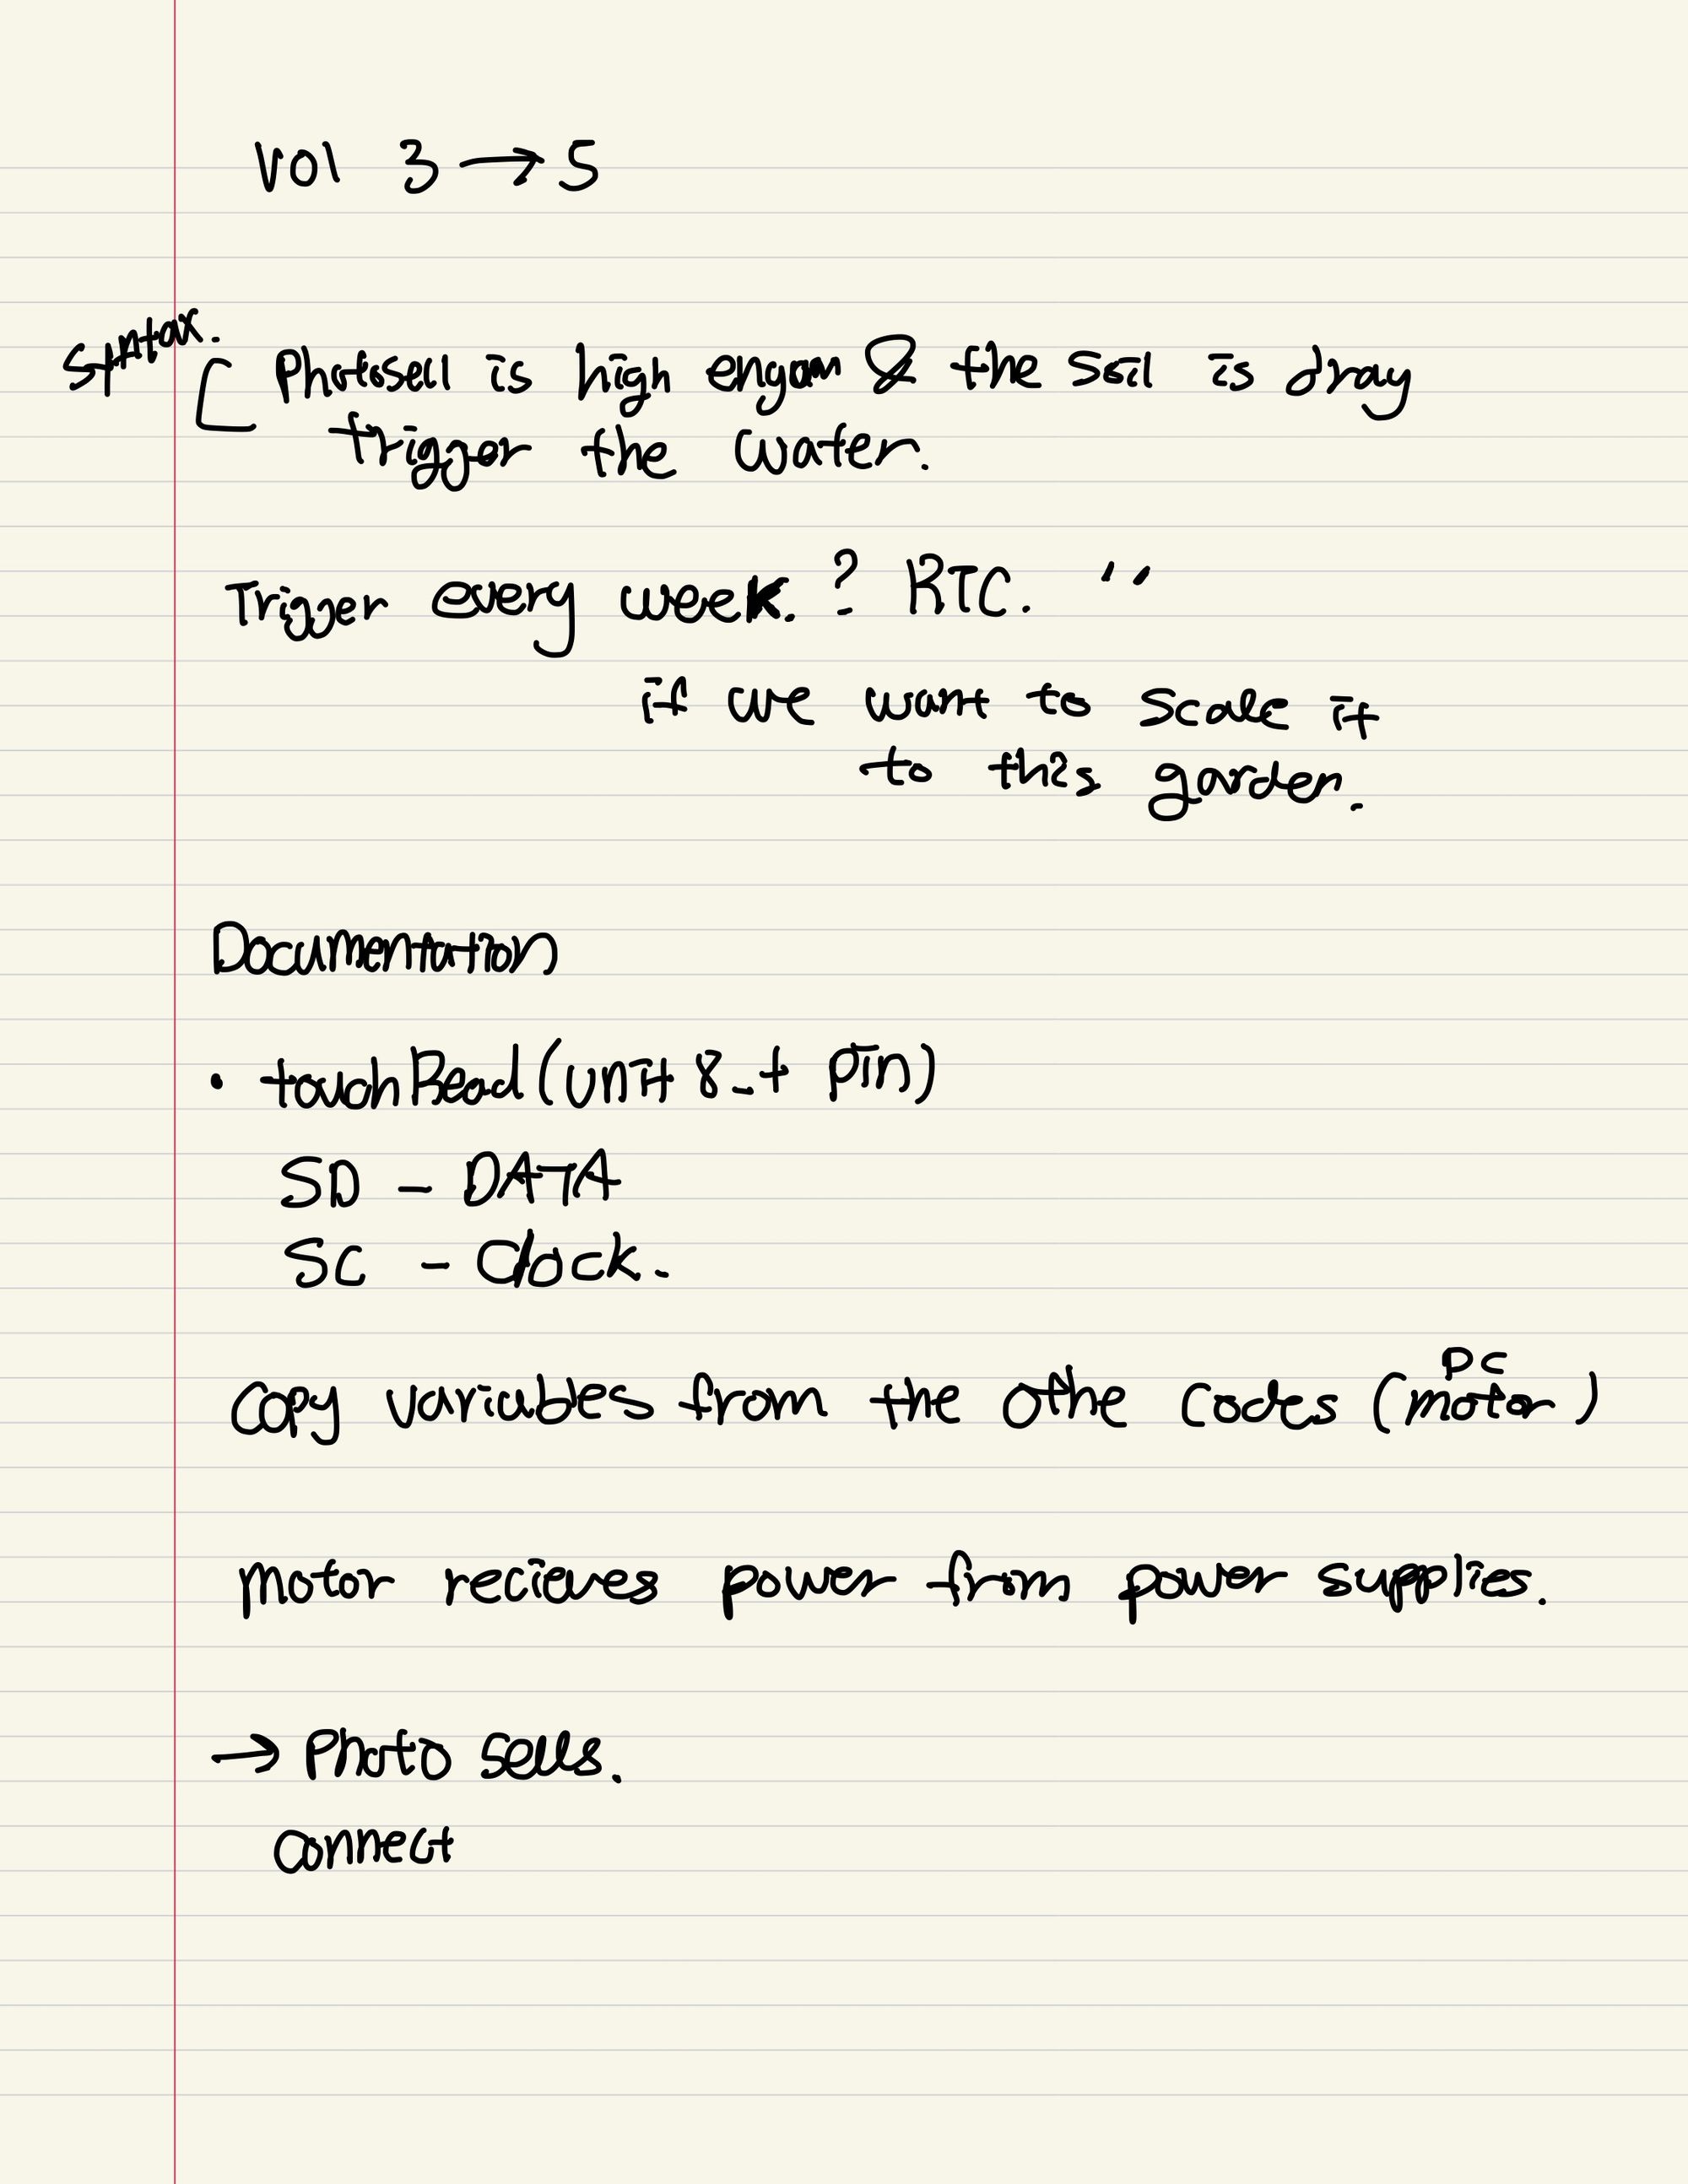 Vol 3 → 5
Syntax.
Photosell is high engh & the soil is dray
trigger the water.
Trigger every week. ? RTC. "
if we want to scale it
to this garden.
Documentation
• touchRead(unit 8_t pin)
SD - DATA
SC - Clock.
Copy variables from the othe codes (motor)
DC
motor recieves power from power supplies.
→ Photo sells.
connect